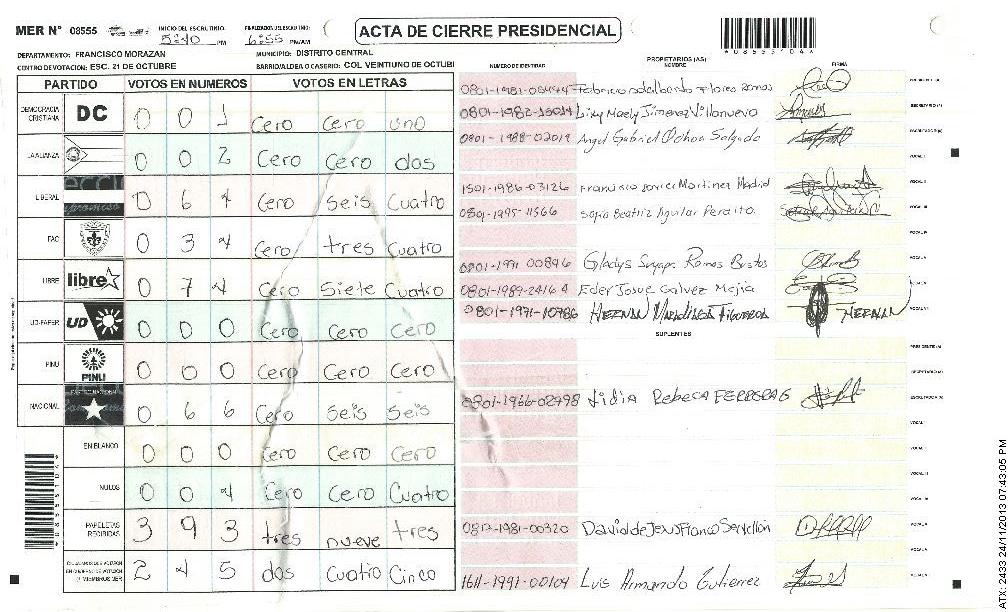 MER N° 08555 INICIO DEL ESCRUTINIO: 5:40 PM FINALIZADO DEL ESCRUTINIO: 6:55 PM/AM ACTA DE CIERRE PRESIDENCIAL
DEPARTAMENTO: FRANCISCO MORAZAN MUNICIPIO: DISTRITO CENTRAL
CENTRO DE VOTACION: ESC. 21 DE OCTUBRE BARRIO/ALDEA O CASERIO: COL VEINTIUNO DE OCTUBI
*08555104*
PARTIDO VOTOS EN NUMEROS VOTOS EN LETRAS
DEMOCRACIA CRISTIANA DC 0 0 1 Cero Cero uno
LA ALIANZA 0 0 2 Cero Cero dos
LIBERAL 0 6 4 Cero Seis Cuatro
FAC 0 3 4 Cero tres Cuatro
LIBRE libre 0 7 4 Cero Siete Cuatro
UD-FAPER UD 0 0 0 Cero Cero Cero
PINU PINU 0 0 0 Cero Cero Cero
NACIONAL 0 6 6 Cero Seis Seis
EN BLANCO 0 0 0 Cero Cero Cero
NULOS 0 0 4 Cero Cero Cuatro
PAPELETAS RECIBIDAS 3 9 3 tres nueve tres
2 4 5 dos Cuatro Cinco
PROPIETARIOS (AS)
NUMERO DE IDENTIDAD NOMBRE FIRMA
Flores Ramos
Jimenez Villanueva
0801-1988-02019 Angel Gabriel Ochoa Salgado
1501-1986-03126 Francisco Javier Martinez Madrid
0801-1995-11566 Sofia Beatriz Aguilar Peralta
0801-1991 00896 Gladys Suyapa Romos Bustos
0801-1989-24164 Eder Josue Galvez Mejia
0801-1971-10786 HERNAN MARADIAGA FIGUEROA HERNAN
SUPLENTES
0801-1966-02798 Lidia Rebeca FERRERAS
0817-1981-00320 David de Jesus Franco Servellón
1611-1991-00104 Luis Armando Gutierrez
ATX 2433 24/11/2013 07:43:05 PM